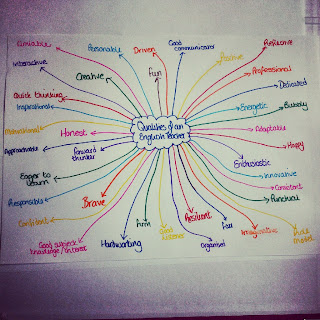 Amiable
Personable
Driven
Good
communicator
Positive
Reflective
Interactive
Creative
Fun
Professional
Quick thinking
Dedicated
Inspirational
Energetic
Bubbly
Qualities of an
English Teacher
Motivational
Honest
Adaptable
Approachable
Forward
thinker
Happy
Enthusiastic
Eager to
learn
Innovative
Consistent
Responsible
Brave
Punctual
Confident
Firm
Good
listener
Resilient
Fair
Imaginative
Role
model
Good subject
knowledge/interest
Hardworking
Organised